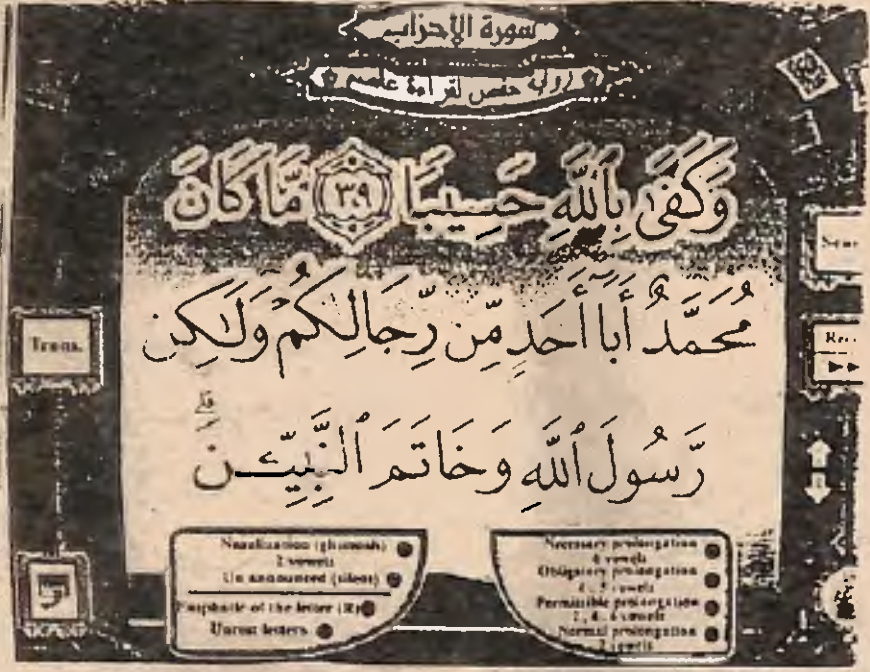 سورة الإحزاب
رواية حفص لقراءة عاصم
وَكَفَىٰ بِٱللَّهِ حَسِيبًا ٣٩ مَّا كَانَ
مُحَمَّدٌ أَبَآ أَحَدٍ مِّن رِّجَالِكُمْ وَلَٰكِن
رَّسُولَ ٱللَّهِ وَخَاتَمَ ٱلنَّبِيِّـۧنَ ۗ
Trans.
Nazalization (ghunnah)
2 vowels
Un announced (silent)
Emphatic of the letter (R)
Unrest letters
Necessary prolongation
6 vowels
Obligatory prolongation
4 , 5 vowels
Permissible prolongation
2 , 4 , 6 vowels
Normal prolongation
2 vowels